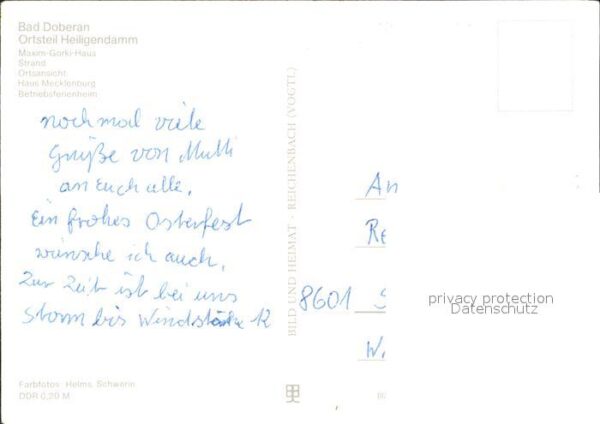 Bad Doberan
Ortsteil Heiligendamm
Maxim-Gorki-Haus
Strand
Ortsansicht
Haus Mecklenburg
Betriebsferienheim
nochmal viele
Grüße von Mutti
an Euch alle.
Ein frohes Osterfest
wünsche ich auch.
Zur Zeit ist bei uns
Sturm bis Windstärke 12
Farbfotos: Helms, Schwerin
DDR 0,20 M
BILD UND HEIMAT · REICHENBACH (VOGTL)
An
Re
8601 S
W
privacy protection
Datenschutz